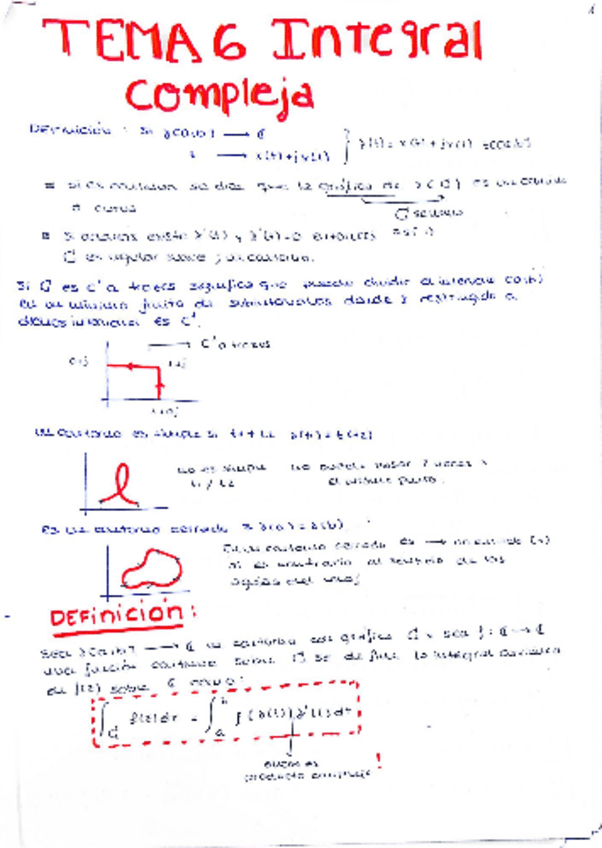 TEMA 6 Integral
Compleja
Definición: Si γ[a,b] → ℂ
t → x(t)+jy(t) } γ(t) = x(t) + jy(t) t∈[a,b]
Si es continua se dice que la gráfica de γ es un contorno
o curva
Si además existe γ'(t) y γ'(t)≠0 entonces
es regular
Si C es C¹ a trozos significa que puedo dividir el intervalo [a,b]
en un número finito de subintervalos donde γ restringido a
dichos intervalos es C¹.
C¹ a trozos
0+j 1+j
1+0j
Un contorno es simple si t1≠t2 γ(t1)≠γ(t2)
no es simple no puede pasar 2 veces x
t1≠t2 el mismo punto.
Es un contorno cerrado si γ(a)=γ(b).
Cada contorno cerrado es → en sentido (+)
si es contrario al sentido de las
agujas del reloj
Definición:
Sea γ[a,b] → ℂ un contorno con gráfica C y sea f: C → ℂ
una función continua sobre C se define la integral
de f(z) sobre C como:
∫_C f(z)dz = ∫_a^b f(γ(t))γ'(t)dt
producto complejo!